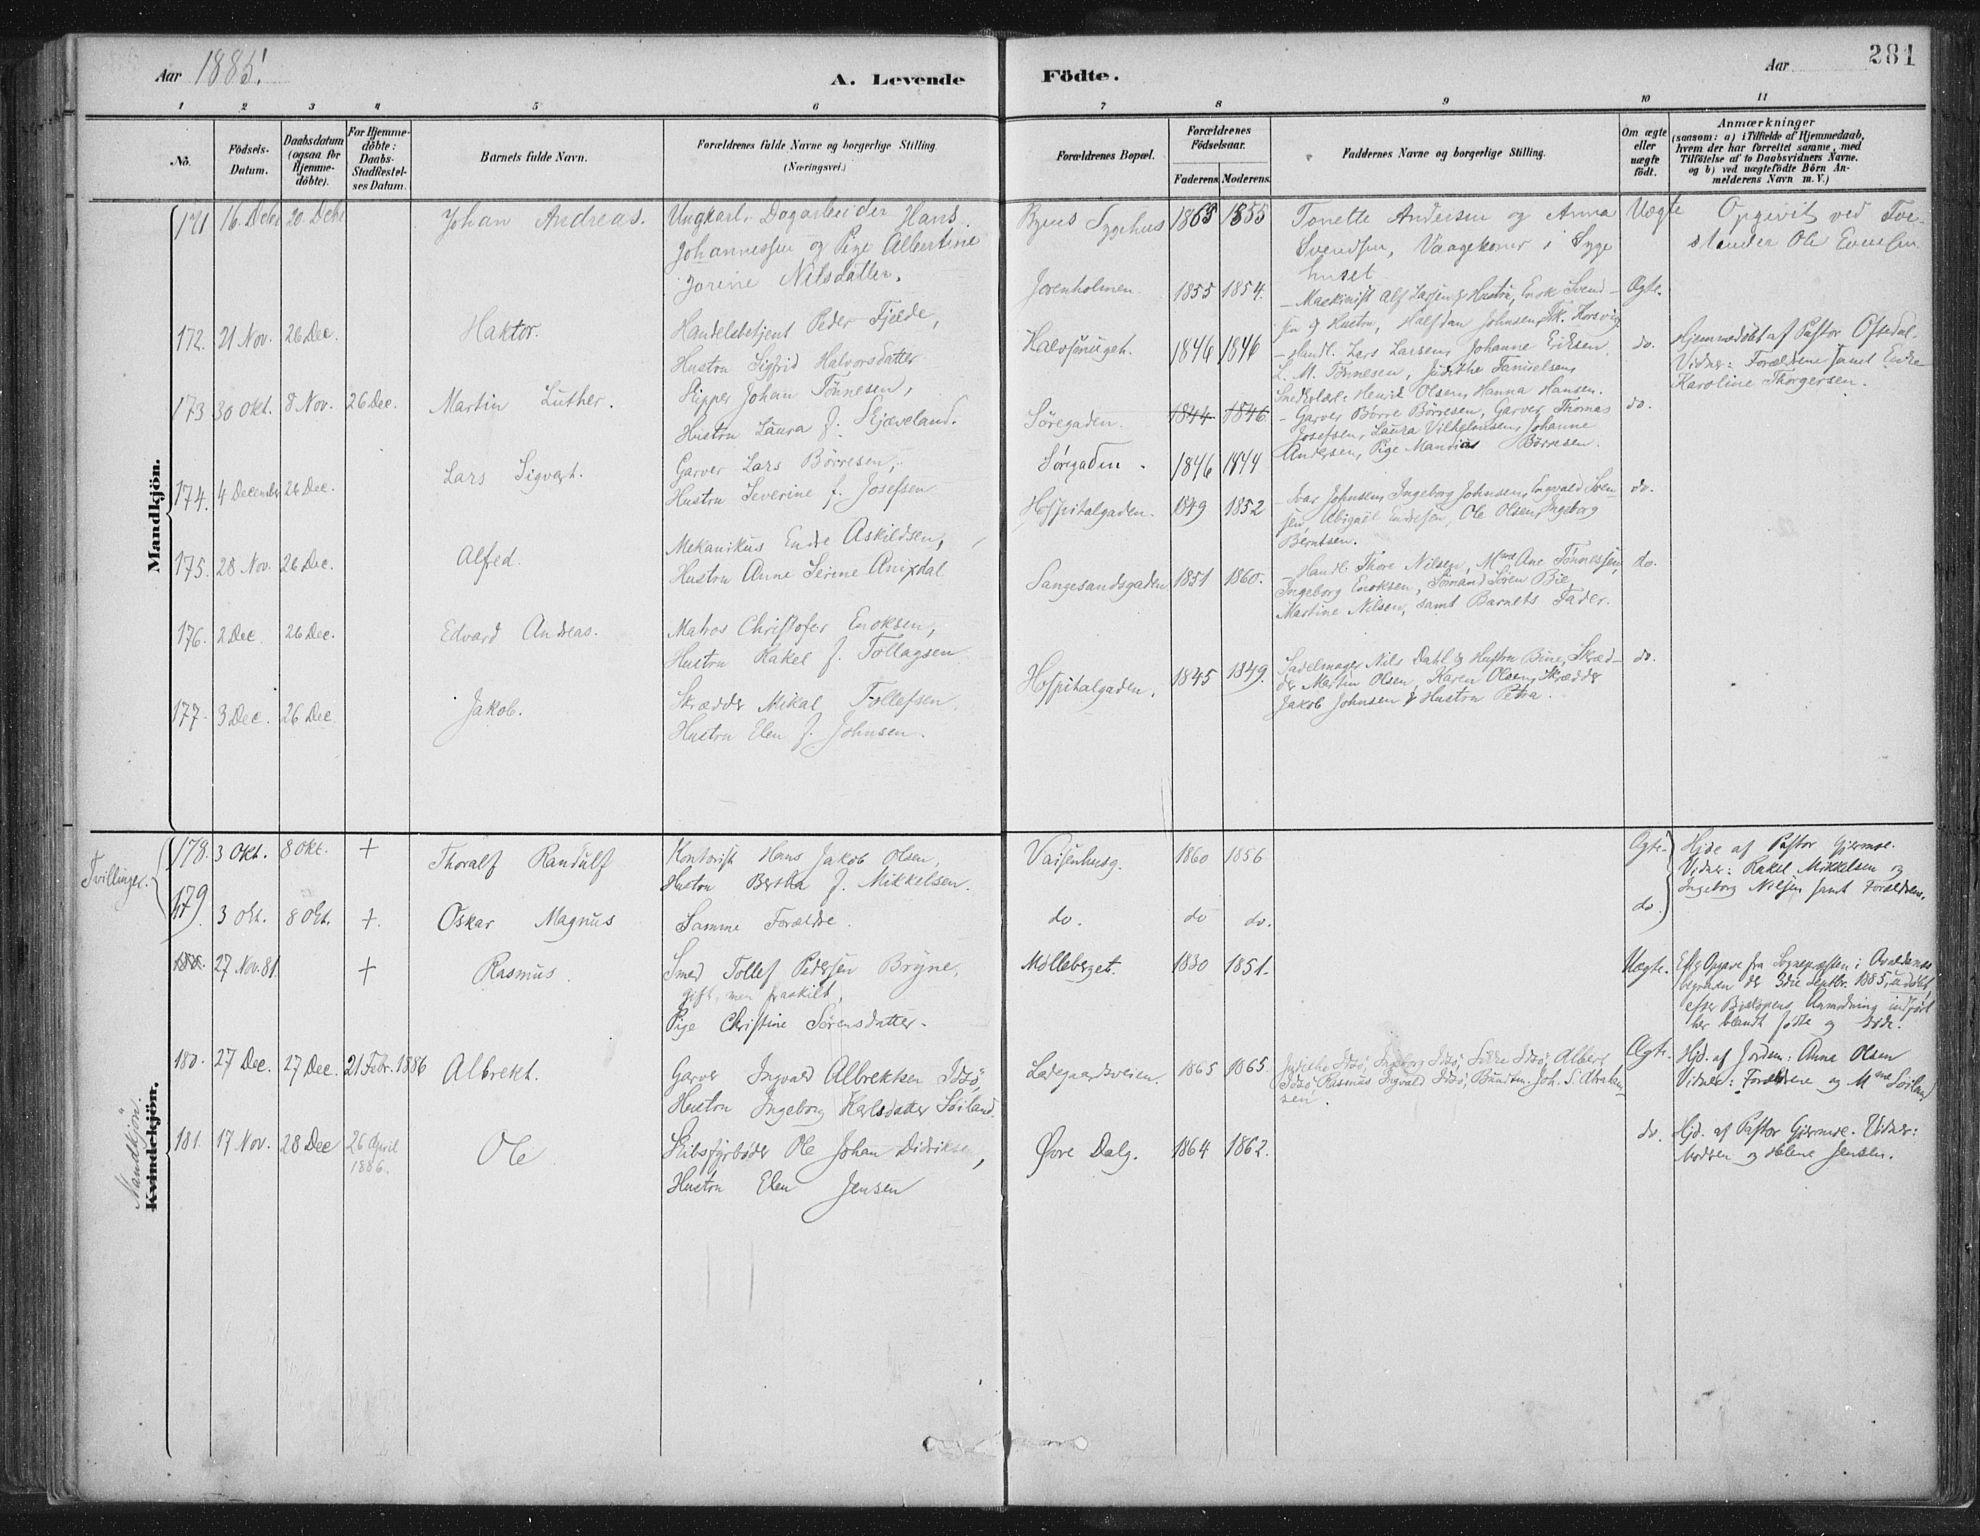 Aar 1885!
A. Levende
Födte.
Aar
281
1 2 3 4 5 6 7 8 9 10 11
No.
Födsels-
Datum.
Daabsdatum
(ogsaa for
Hjemme-
döbte).
For Hjemme-
döbte:
Daabs-
Stadfæstel-
ses Datum.
Barnets fulde Navn.
Forældrenes fulde Navne og borgerlige Stilling.
(Næringsvei.)
Forældrenes Bopæl.
Forældrenes
Födselsaar.
Faderens. Moderens.
Faddernes Navne og borgerlige Stilling.
Om ægte
eller
uægte
födt.
Anmærkninger
(saasom: a) i Tilfælde af Hjemmedaab,
hvem der har forrettet samme, med
Tilföielse af to Daabsvidners Navne.
og b) ved uægtefödte Börn An-
melderens Navn m. V.)
Mandkjön.
171 16. Dcbr 20. Dcbr Johan Andreas.
Ungkarl. Dagarbeider Hans
Johannessen og Pige Albertine
Jorine Nilsdatter.
Byens Sygehus 1853 1855
Tonette Andersen og Anna
Svendsen, Vaagekoner i Syge
huset
Uægte
Opgivet ved For-
stander Ole Evensen
172. 21 Nov. 26 Dec. Haktor.
Handelsbetjent Peder Fjelde,
Hustru Sigfrid Halvorsdatter
Jorenholmen 1855 1854.
- Maskinist Alf Larsen & Hustru, Enok Svend-
sen & Hustru, Halfdan Johnsen,
Ægte.
173 30 Okt. 8 Nov. 26 Dec. Martin Luther.
Skipper Johan Tönnesen,
Hustru Laura f. Kjæveland.
1846 1846
- Handl. Lars Larsen, Johanne Eriksen.
L. M. Tönnesen, Judithe Danielsen,
Henrik Olsen, Hanna Hansen.
do.
Hjemmedöbt af Pastor Oftedal.
Vidner: Forældrene samt Endre
Karoline Thorgersen.
Söregaden. 1844 1846
174. 4 December 26 Dec. Lars Sigvart.
Garver Lars Börresen,
Hustru Severine f. Josefsen
Söregaden. 1846 1844
- Garver Börre Börresen, Garver Thomas
Josefsen, Laura Vilhelmsen, Johanne
Andersen, Pige Mandias Börresen.
do.
175. 28 Nov. 26 Dec. Alfred.
Mekanikus Endre Askildsen,
Hustru Anne Serine Anixdal
Hospitalgaden. 1849 1852
Ivar Johnsen, Ingeborg Johnsen, Engvald Sven
sen, Abigael Endresen, Ole Olsen, Ingeborg
Berntsen.
do.
176. 2 Dec. 26 Dec. Edvard Andreas.
Matros Christofer Enoksen,
Hustru Rakel f. Tollagsen
Langesandsgaden 1851 1860.
- Handl. Thore Nilsen, Mme Ane Tönnessen,
Ingeborg Enoksen, Sömand Sören Bie,
Martine Nilsen, samt Barnets Fader.
do.
177. 3 Dec. 26 Dec Jakob.
Skrædder Mikal Tollefsen.
Hustru Elen f. Johnsen.
Hospitalgaden. 1845 1849.
Sadelmager Nils Dahl & Hustru Bine, Skræd-
der Martin Olsen, Karen Olsen, Skrædder
Jakob Johnsen & Hustru Petra.
do.
Tvillinger.
178. 3 Okt. 8 Okt. + Thoralf Randulf
Kontorist Hans Jakob Olsen,
Hustru Bertha f. Mikkelsen.
Vaisenhusg. 1860 1856
Ægte.
Hjde af Pastor Gjermoe.
Vidner: Rakel Mikkelsen og
Ingeborg Nilsen samt Forældrene.
179. 3 Okt. 8 Okt. + Oskar Magnus
Samme Forældre.
do. do do. do.
180. 27 Nov. 81. + Rasmus
Smed Tollef Pedersen Bryne,
gift, men fraskilt,
Pige Christine Sörensdatter.
Mølleberget. 1830 1851.
Uægte.
Efter Opgave fra Sognepresten i Avaldsnes
begraven der 3die Septbr. 1885, udöbt,
efter Biskopens Anmodning indfört
her blandt födte og döde.
Mandkjön.
Kvindekjön.
180. 27 Dec. 27 Dec. 21 Febr. 1886 Albrekt.
Garver Ingvald Albrektsen Idsö,
Hustru Ingeborg Karlsdatter Soiland.
Ladegaardsveien. 1865 1865.
Judithe Idsö, Ingeborg Idsö, Albert
Idsö, Rasmus Ingvald Idsö, Joh. S. Abraham
sen.
Ægte.
Hjd. af Jordem: Anna Olsen
Vidner: Forældrene og Mme Soiland
181. 17 Nov. 28 Dec 26 April
1886.
Ole
Skibsfyrböder Ole Johan Didriksen,
Hustru Elen Jensen
Øvre Dalg. 1864 1862.
do.
Hjd. af Pastor Gjermoe. Vidner:
Modren og Helene Jensen.